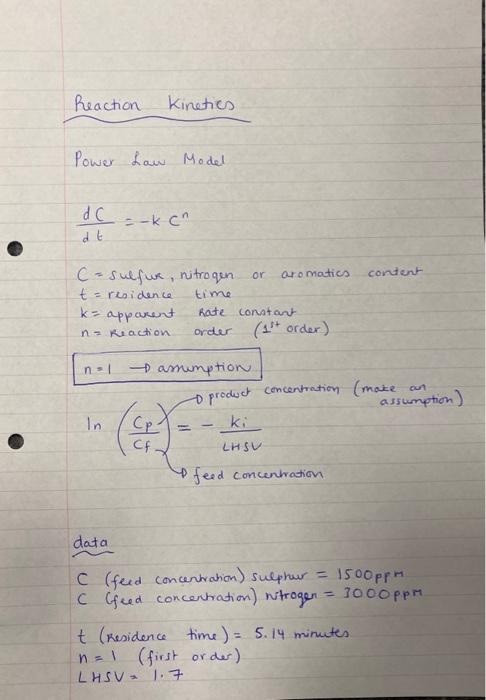 Reaction Kinetics
Power Law Model
dC/dt = -k C^n
C = sulfur, nitrogen or aromatics content
t = residence time
k = apparent rate constant
n = Reaction order (1st order)
n=1 → assumption
→ product concentration (make an assumption)
ln (Cp/Cf) = - ki/LHSV
→ feed concentration
data
C (feed concentration) sulphur = 1500ppm
C (feed concentration) nitrogen = 3000ppm
t (Residence time) = 5.14 minutes
n=1 (first order)
LHSV = 1.7